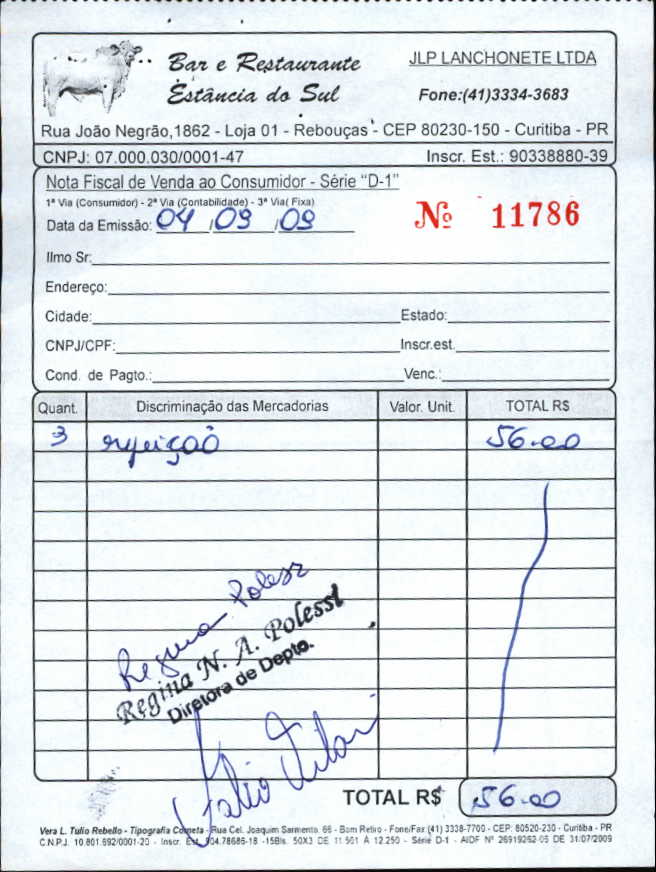 Bar e Restaurante
Estância do Sul
JLP LANCHONETE LTDA
Fone:(41)3334-3683
Rua João Negrão,1862 - Loja 01 - Rebouças - CEP 80230-150 - Curitiba - PR
CNPJ: 07.000.030/0001-47 Inscr. Est.: 90338880-39
Nota Fiscal de Venda ao Consumidor - Série "D-1"
1ª Via (Consumidor) - 2ª Via (Contabilidade) - 3ª Via( Fixa)
Data da Emissão: 04 / 09 / 09 Nº 11786
Ilmo Sr:
Endereço:
Cidade: Estado:
CNPJ/CPF: Inscr.est.
Cond. de Pagto.: Venc.:
Quant. Discriminação das Mercadorias Valor. Unit. TOTAL R$
3 refeição 56.00
Regina Polessi
Regina N. A. Polessi
Diretora de Depto.
TOTAL R$ 56.00
Vera L. Tulio Rebello - Tipografia Cometa - Rua Cel. Joaquim Sarmento, 66 - Bom Retiro - Fone/Fax (41) 3338-7700 - CEP: 80520-230 - Curitiba - PR
C.N.P.J. 10.801.692/0001-20 - Inscr. Est. 904.78686-18 -15Bls. 50X3 DE 11.501 À 12.250 - Série D-1 - AIDF Nº 26919262-05 DE 31/07/2009